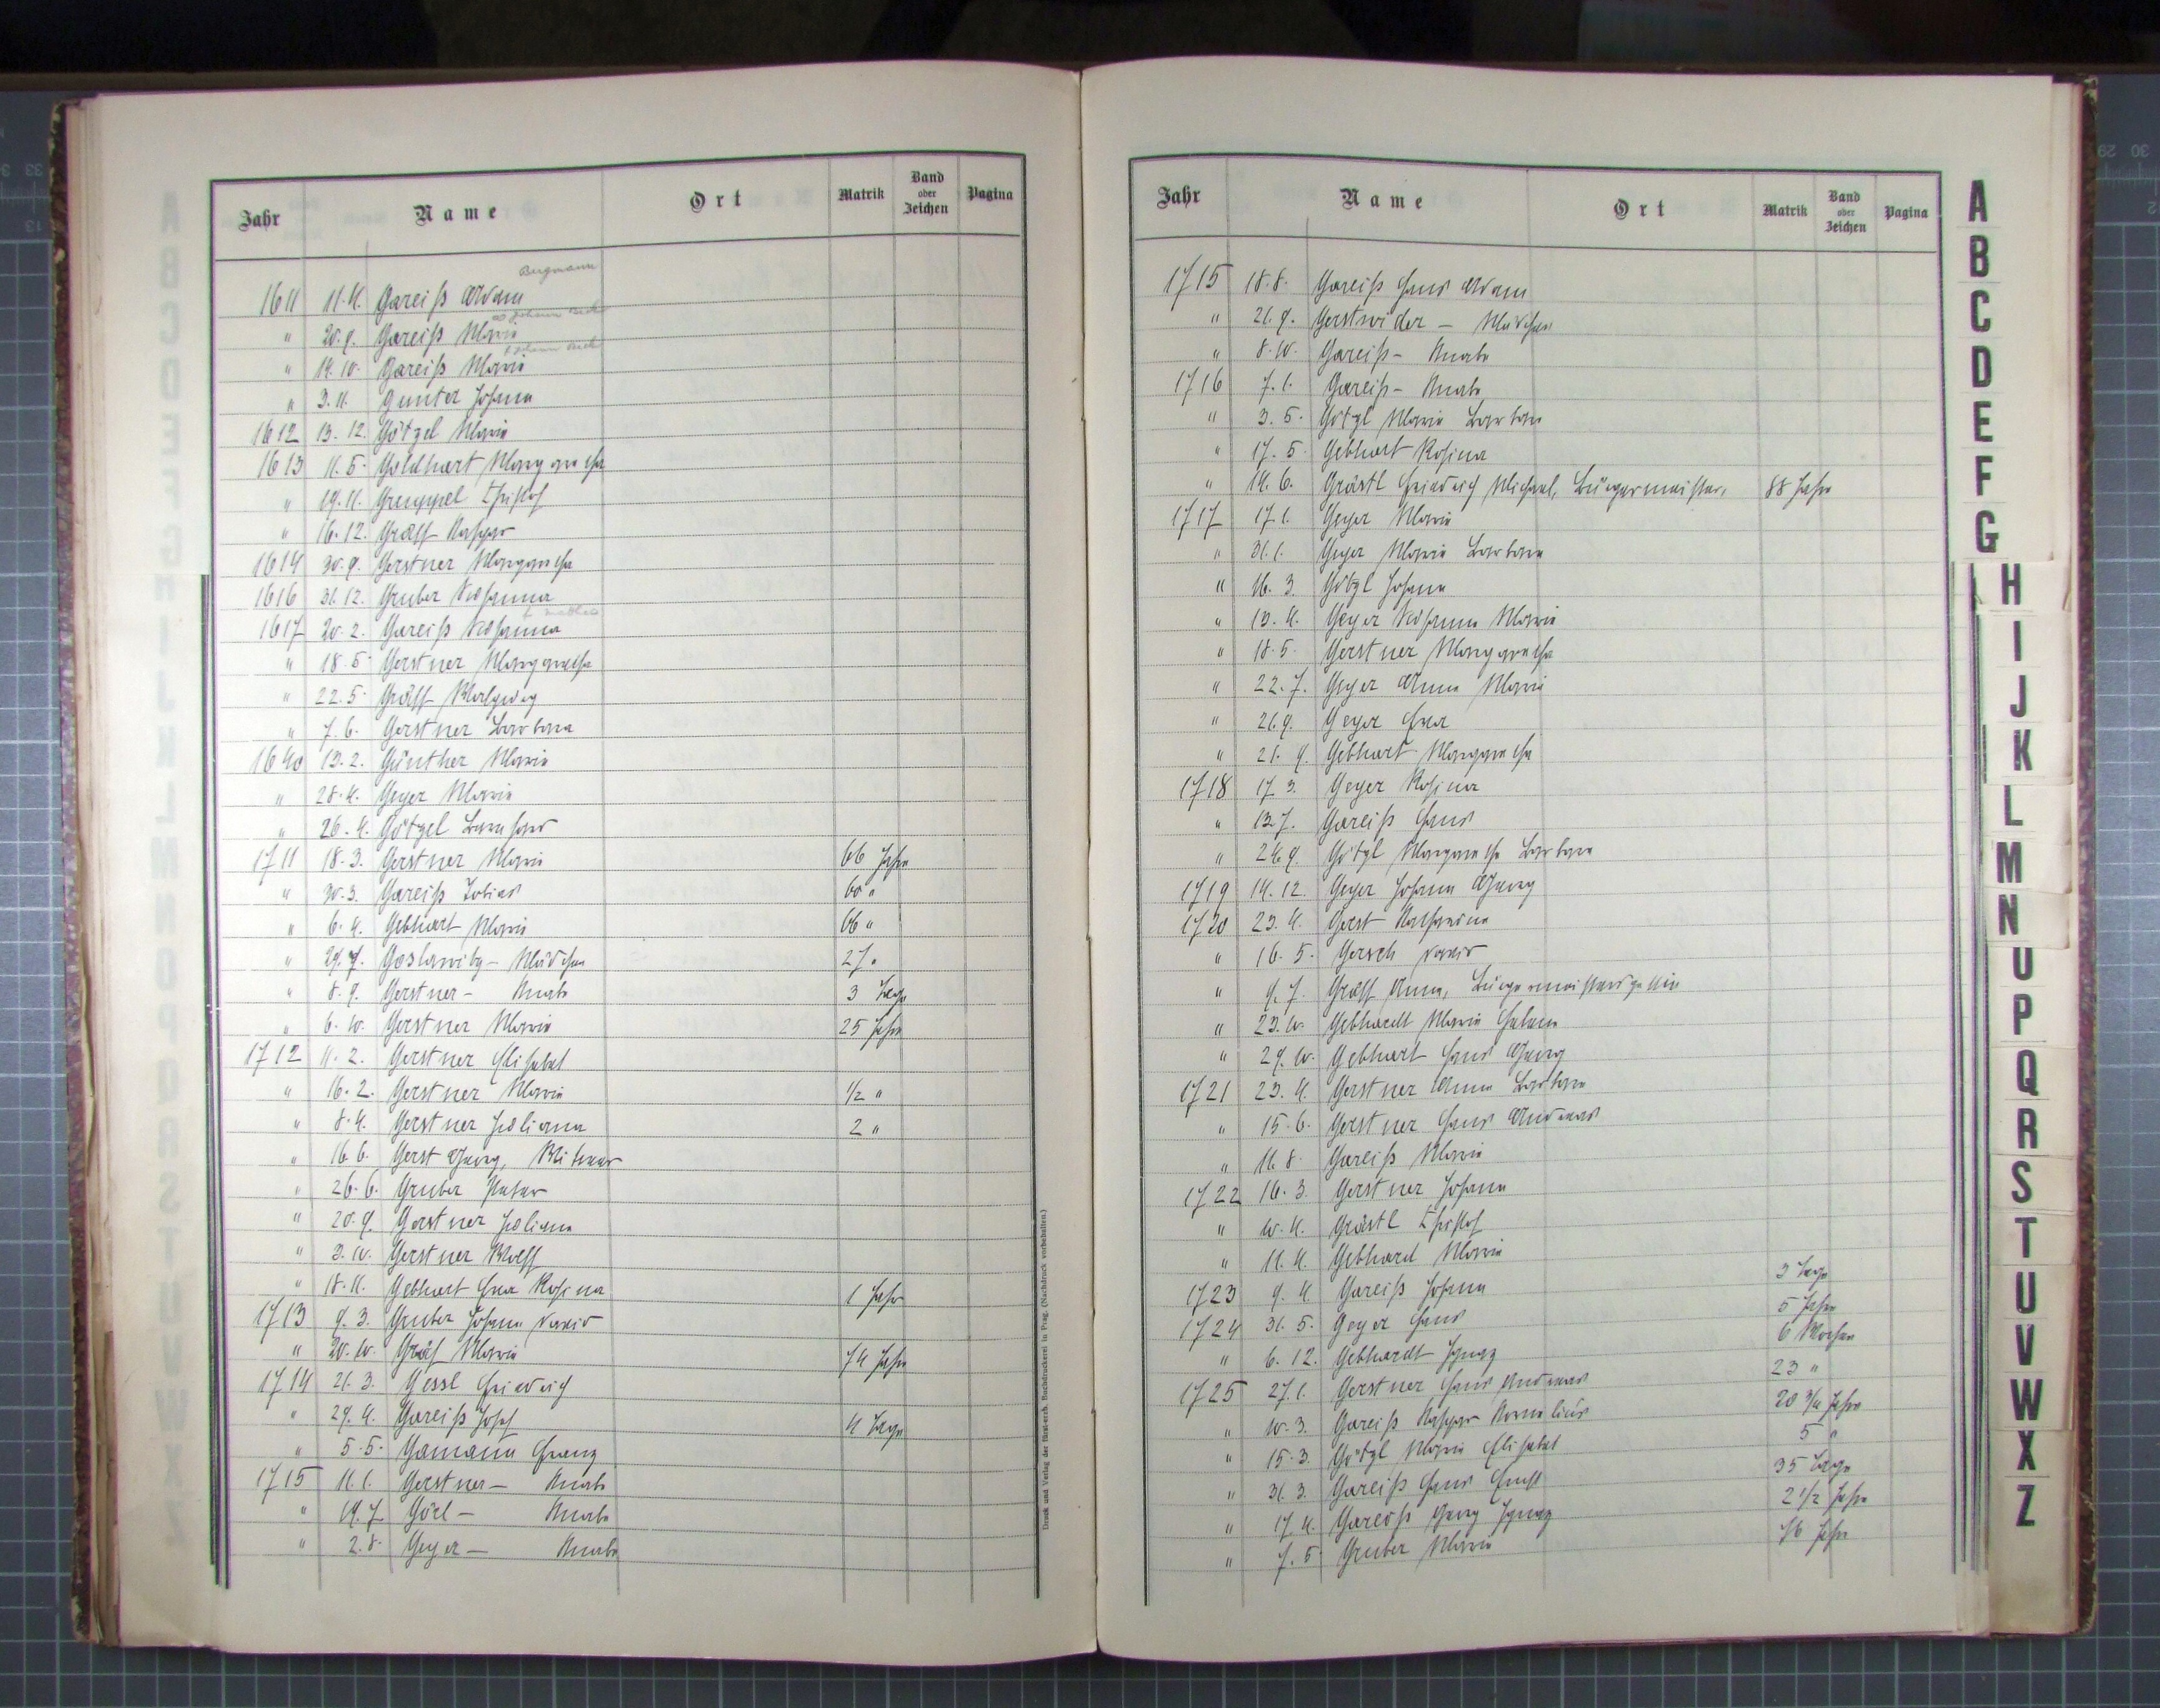 Jahr Name Ort Matrik Band oder Zeichen Pagina
Bergmann
1611 11.4. Gareiß Adam
" 20.9. Gareiß Marie
" 14.10. Gareiß Marie
" 3.11. Gunter Johann
1612 13.12. Götzel Marie
1613 11.5. Goldhart Margaretha
" 19.11. Gremppel Christof
" 16.12. Gräff Kaspar
1614 30.9. Gerstner Margaretha
1616 31.12. Gruber Susanna
1617 20.2. Gareiß Susanna
" 18.5. Gerstner Margaretha
" 22.5. Gräff Walpurg
" 7.6. Gerstner Barbara
1640 13.2. Günther Marie
" 28.4. Geyer Marie
" 26.4. Götzel Barbara
1711 18.3. Gerstner Marie 66 Jahre
" 30.3. Gareiß Tobias 60 "
" 6.4. Gebhart Marie 66 "
" 29.7. - Mädchen 27 "
" 8.9. Gerstner - Knabe 3 Tage
" 6.10. Gerstner Marie 25 Jahre
1712 11.2. Gerstner Elisabet
" 16.2. Gerstner Marie 1/2 "
" 8.4. Gerstner Juliana 2 "
" 16.6. Gerst Georg, Witwer
" 26.6. Gruber Peter
" 20.9. Gerstner Juliana
" 3.10. Gerstner Wolff
" 18.11. Gebhart Eva Rosina 1 Jahr
1713 9.3. Gruber Johann David
" 20.10. Gräf Marie 74 Jahre
1714 21.3. Gessl Friedrich
" 29.4. Gareiß Josef 4 Tage
" 5.5. Gamann Franz
1715 11.1. Gerstner - Knabe
" 19.7. Görl - Knabe
" 2.8. Geyer - Knabe
Druck und Verlag der fürst-erzb. Buchdruckerei in Prag. (Nachdruck vorbehalten.)
Jahr Name Ort Matrik Band oder Zeichen Pagina
1715 18.8. Gareiß Hans Adam
" 21.9. Gerstwider - Mädchen
" 8.10. Gareiß - Knabe
1716 7.1. Gareiß - Knabe
" 3.5. Götzl Marie Barbara
" 17.5. Gebhart Rosina
" 14.6. Grästl Friedrich Michael, Bürgermeister, 88 Jahre
1717 17.1. Geyer Marie
" 31.1. Geyer Marie Barbara
" 16.3. Götzl Johann
" 13.4. Geyer Susanna Marie
" 18.5. Gerstner Margaretha
" 22.7. Geyer Anna Marie
" 21.9. Geyer Eva
" 21.9. Gebhart Margaretha
1718 17.3. Geyer Rosina
" 13.7. Gareiß Hans
" 24.9. Götzl Margaretha Barbara
1719 14.12. Geyer Johann Georg
1720 23.4. Gerst Katharina
" 16.5. Gersch David
" 9.7. Gräff Anna, Bürgermeistersgattin
" 23.10. Gebhardt Marie Helena
" 29.10. Gebhart Hans Georg
1721 23.4. Gerstner Anna Barbara
" 15.6. Gerstner Hans Andreas
" 11.8. Gareiß Marie
1722 16.3. Gerstner Johann
" 10.4. Grästl Christof
" 11.4. Gebhard Marie
1723 9.4. Gareiß Johann 3 Tage
1724 31.5. Geyer Hans 5 Jahre
" 6.12. Gebhardt Ignaz 6 Wochen
1725 27.1. Gerstner Hans Andreas 23 "
" 10.3. Gareiß Kaspar Kornelius 20 3/4 Jahre
" 15.3. Götzl Marie Elisabet 5 "
" 31.3. Gareiß Hans Ernst 35 Tage
" 17.4. Gareiß Georg Ignaz 2 1/2 Jahre
" 7.5. Gruber Marie 76 Jahre
A
B
C
D
E
F
G
H
I
J
K
L
M
N
U
P
Q
R
S
T
U
V
W
X
Z